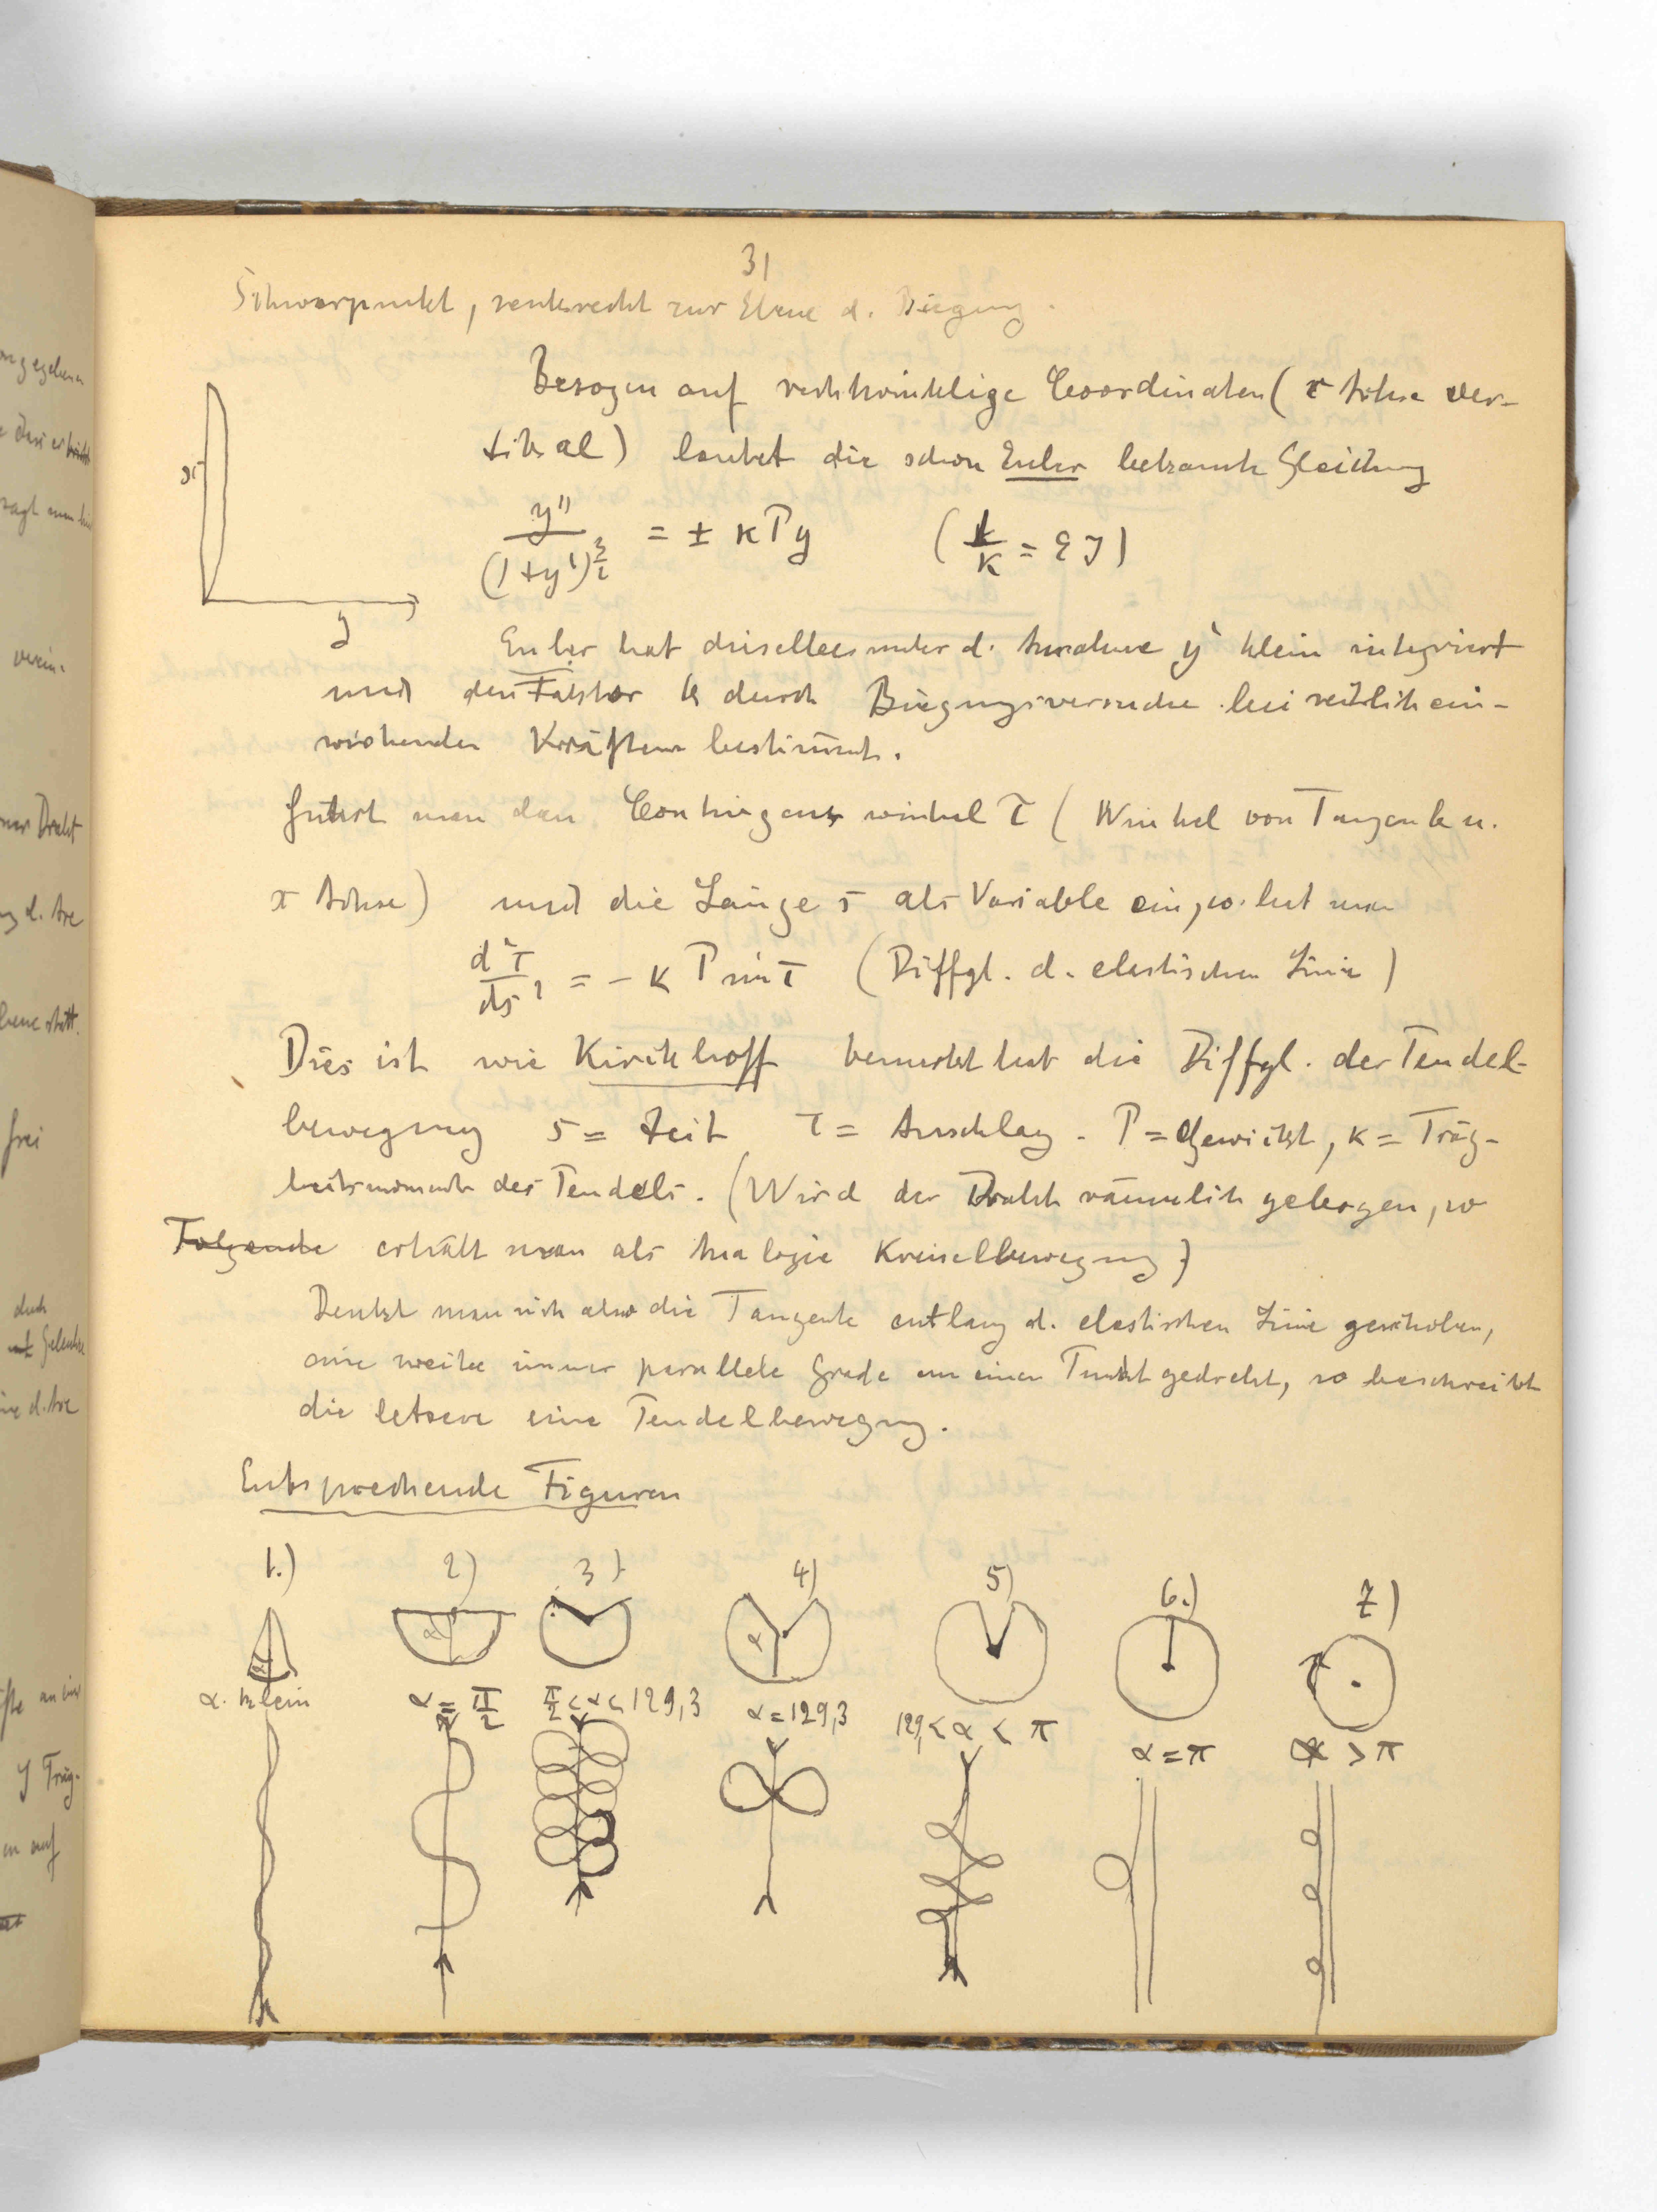 31
Schwerpunkt, senkrecht zur Ebene d. Biegung.
Bezogen auf rechtwinklige Coordinaten (x Achse ver-
tikal) lautet die schon Euler bekannte Gleichung
x
y
y'' / (1+y')^{3/2} = ± κPy (1/κ = EJ)
Euler hat dieselbe unter d. Annahme y' klein integriert
und den Faktor k durch Biegungsversuche bei seitlich ein-
wirkenden Kräften bestimmt.
Führt man den Contingenzwinkel τ (Winkel von Tangente u.
x Achse) und die Länge s als Variable ein, so hat man
d²τ/ds² = - κ P sin τ (Diffgl. d. elastischen Linie)
Dies ist wie Kirchhoff bemerkt hat die Diffgl. der Pendel-
bewegung s = Zeit τ = Ausschlag. P = Gewicht, κ = Träg-
heitsmoment des Pendels. (Wird der Draht räumlich gebogen, so
Folgende erhält man als Analogie Kreiselbewegung)
Denkt man sich also die Tangente entlang d. elastischen Linie geschoben,
eine zweite immer parallele Grade um einen Punkt gedreht, so beschreibt
die letzere eine Pendelbewegung.
Entsprechende Figuren
1.) 2) 3) 4) 5) 6.) 7)
α α α
α. klein α = π/2 π/2 < α < 129,3 α = 129,3 129, < α < π α = π α > π